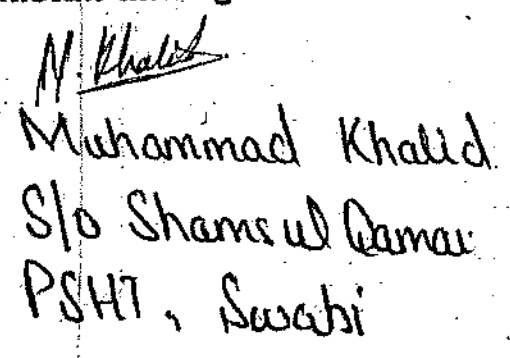 M. Khalid
Muhammad Khalid
S/o Shams ul Qamar
PSHT, Swabi